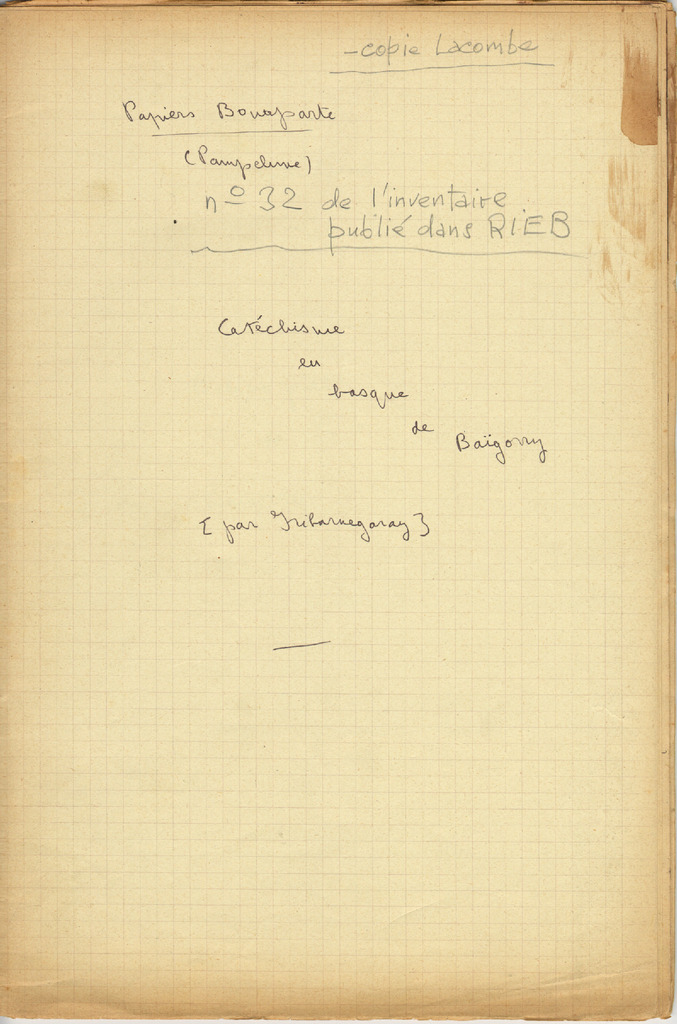 -copie Lacombe
Papiers Bonaparte
(Pampelune)
nº 32 de l'inventaire
publié dans RIEB
Catéchisme
en
basque
de
Baïgorry
[par Iribarnegaray]